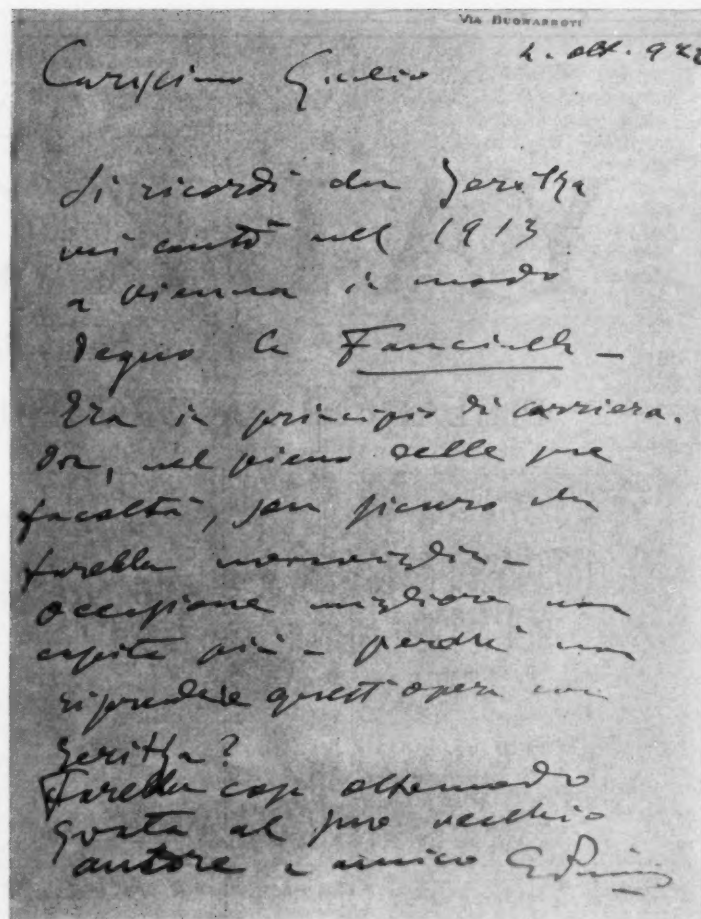 VIA BUONARROTI
4. ott. 922
Carissimo Giulio
Si ricordi che Jeritza
mi cantò nel 1913
a Vienna in modo
degno la Fanciulla –
Era in principio di carriera.
Ora, nel pieno delle sue
facoltà, son sicuro che
farebbe meraviglia –
occasione migliore non
capita più – perchè non
riprendere quest'opera con
Jeritza?
Farebbe cosa oltremodo
grata al suo vecchio
autore e amico